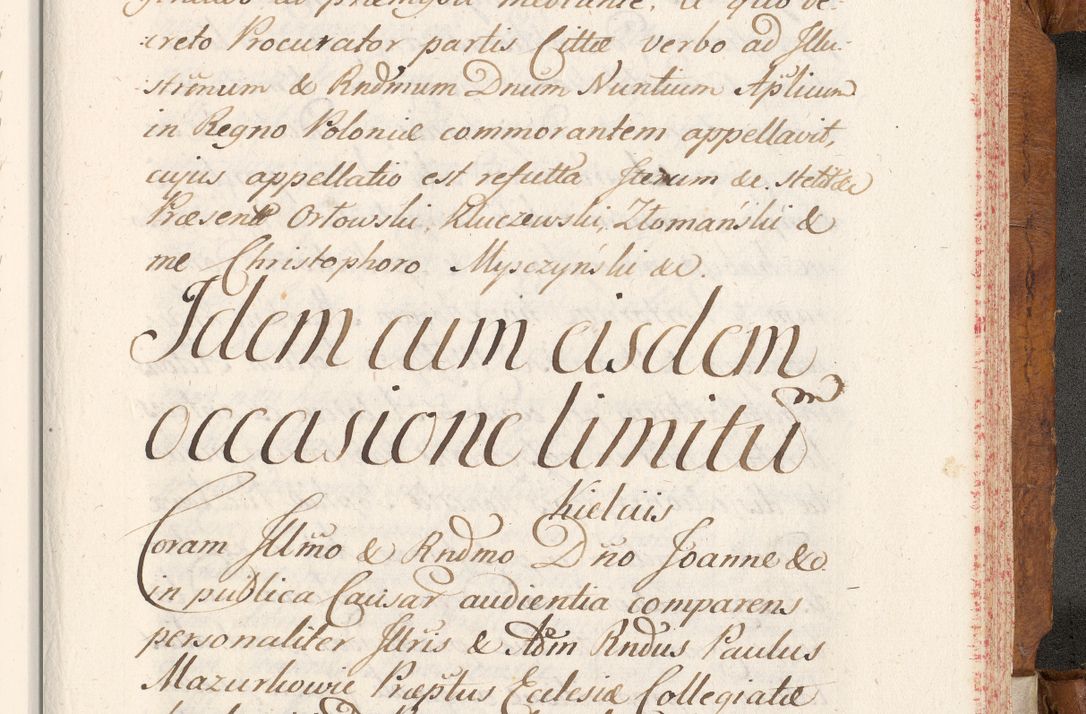 creto Procurator partis Cittæ verbo ad Illu-
strimum & Rndmum Dnum Nuntium Aplicum
in Regno Poloniæ commorantem appellavit,
cujus appellatio est refutta Iterum &c. stetit &c
Præsent Orłowski, Kluczewski, Złomański &
me Christophoro Myszczyński &c
Idem cum eisdem
occasione limitum
Kielciis
Coram Illmo & Rndmo Dño Joanne &c
in publica Causar audientia comparens
personaliter Illris & Adm Rndus Paulus
Mazurkowic Præptus Ecclesiæ Collegiatæ